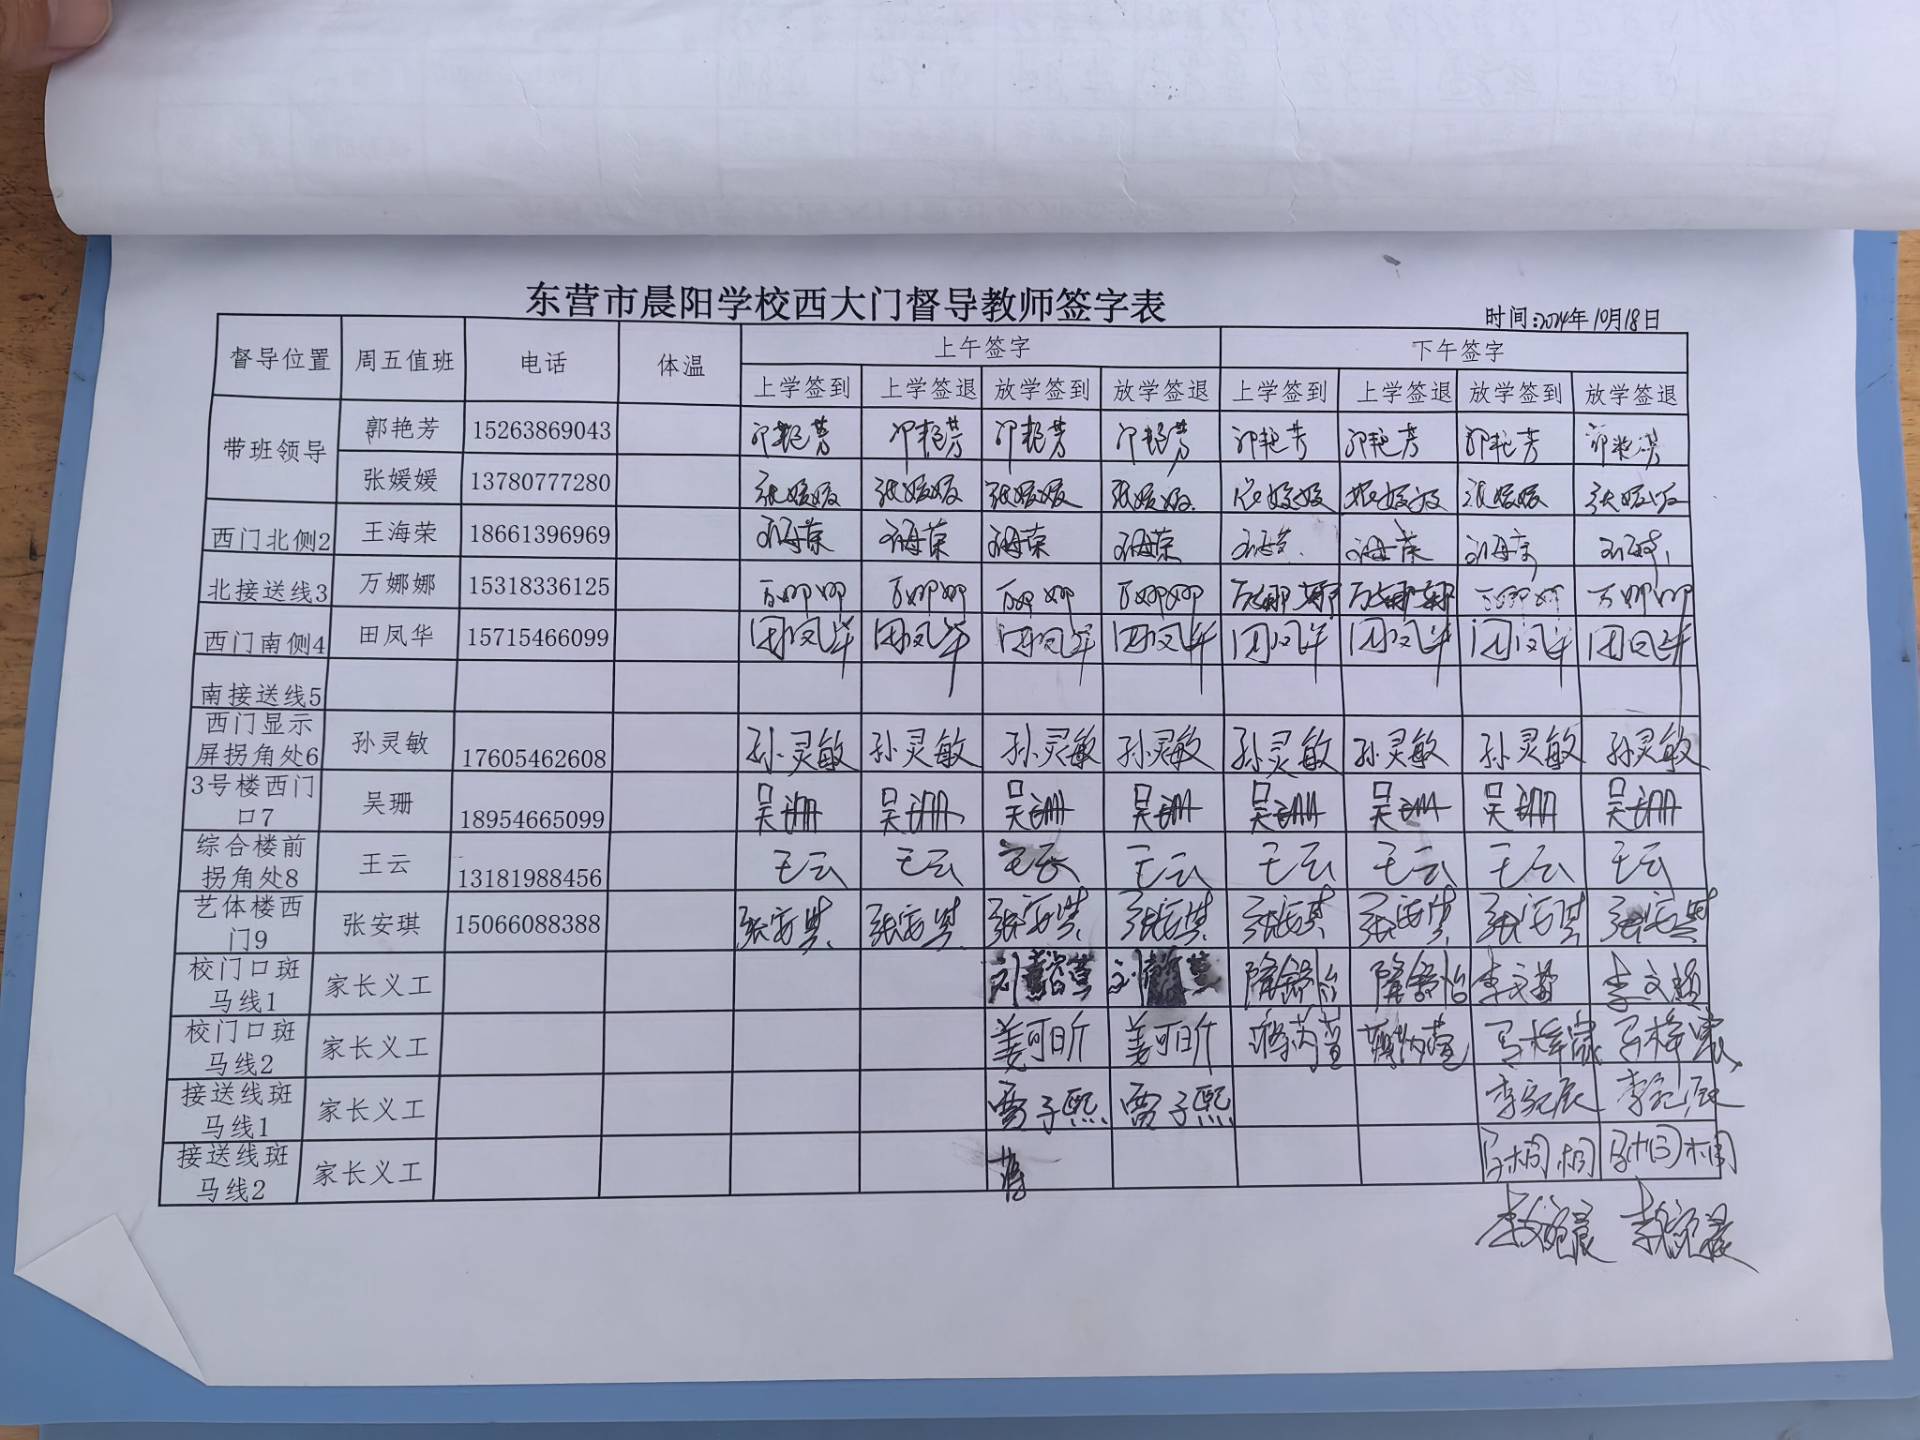 东营市晨阳学校西大门督导教师签字表
时间:2024年10月18日
督导位置 周五值班 电话 体温 上午签字 下午签字
上学签到 上学签退 放学签到 放学签退 上学签到 上学签退 放学签到 放学签退
带班领导 郭艳芳 15263869043 郭艳芳 郭艳芳 郭艳芳 郭艳芳 郭艳芳 郭艳芳 郭艳芳 郭艳芳
张媛媛 13780777280 张媛媛 张媛媛 张媛媛 张媛媛 张媛媛 张媛媛 张媛媛 张媛媛
西门北侧2 王海荣 18661396969 王海荣 王海荣 王海荣 王海荣 王海荣 王海荣 王海荣 王海荣
北接送线3 万娜娜 15318336125 万娜娜 万娜娜 万娜娜 万娜娜 万娜娜 万娜娜 万娜娜 万娜娜
西门南侧4 田凤华 15715466099 田凤华 田凤华 田凤华 田凤华 田凤华 田凤华 田凤华 田凤华
南接送线5
西门显示
屏拐角处6 孙灵敏 17605462608 孙灵敏 孙灵敏 孙灵敏 孙灵敏 孙灵敏 孙灵敏 孙灵敏 孙灵敏
3号楼西门
口7 吴珊 18954665099 吴珊 吴珊 吴珊 吴珊 吴珊 吴珊 吴珊 吴珊
综合楼前
拐角处8 王云 13181988456 王云 王云 王云 王云 王云 王云 王云 王云
艺体楼西
门9 张安琪 15066088388 张安琪 张安琪 张安琪 张安琪 张安琪 张安琪 张安琪 张安琪
校门口斑
马线1 家长义工 隆舒怡 隆舒怡
校门口斑
马线2 家长义工 姜可昕 姜可昕 马梓宸 马梓宸
接送线斑
马线1 家长义工 贾子熙 贾子熙 李宛辰 李宛辰
接送线斑
马线2 家长义工 马桐桐 马桐桐